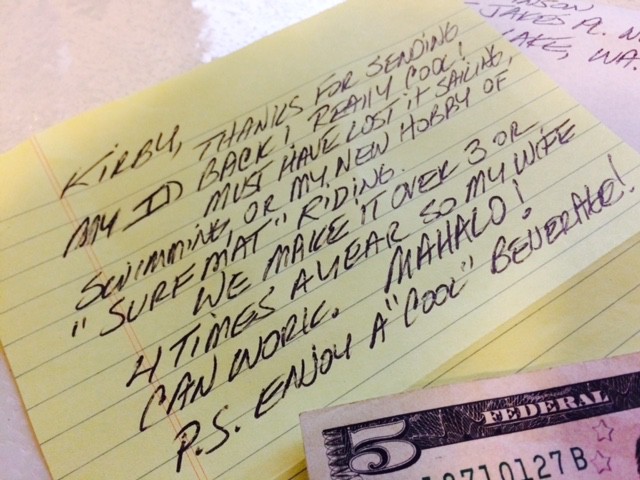 KIRBY, THANKS FOR SENDING
MY ID BACK! REALLY COOL!
MUST HAVE LOST IT SAILING,
SWIMMING, OR MY NEW HOBBY OF
"SURFMAT" RIDING.
WE MAKE IT OVER 3 OR
4 TIMES A YEAR SO MY WIFE
CAN WORK. MAHALO!
P.S. ENJOY A "COOL" BEVERAGE!
5
FEDERAL
0710127B